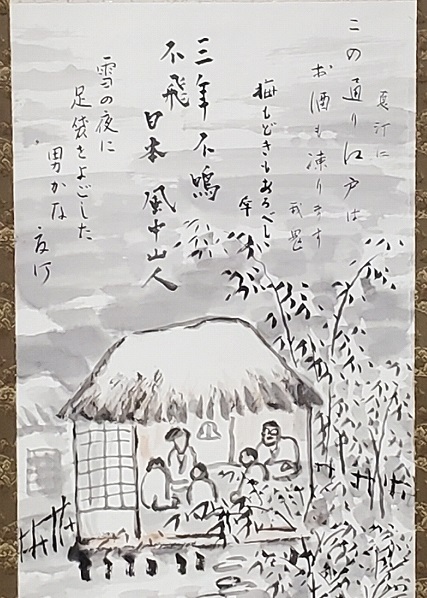 この通り江戸は
夏汀に
お酒も凍ります
我鬼
梅もどきもあるべし
傘
三年不鳴
不飛
日本 風中山人
雪の夜に
足袋をよごした
男かな
夏汀